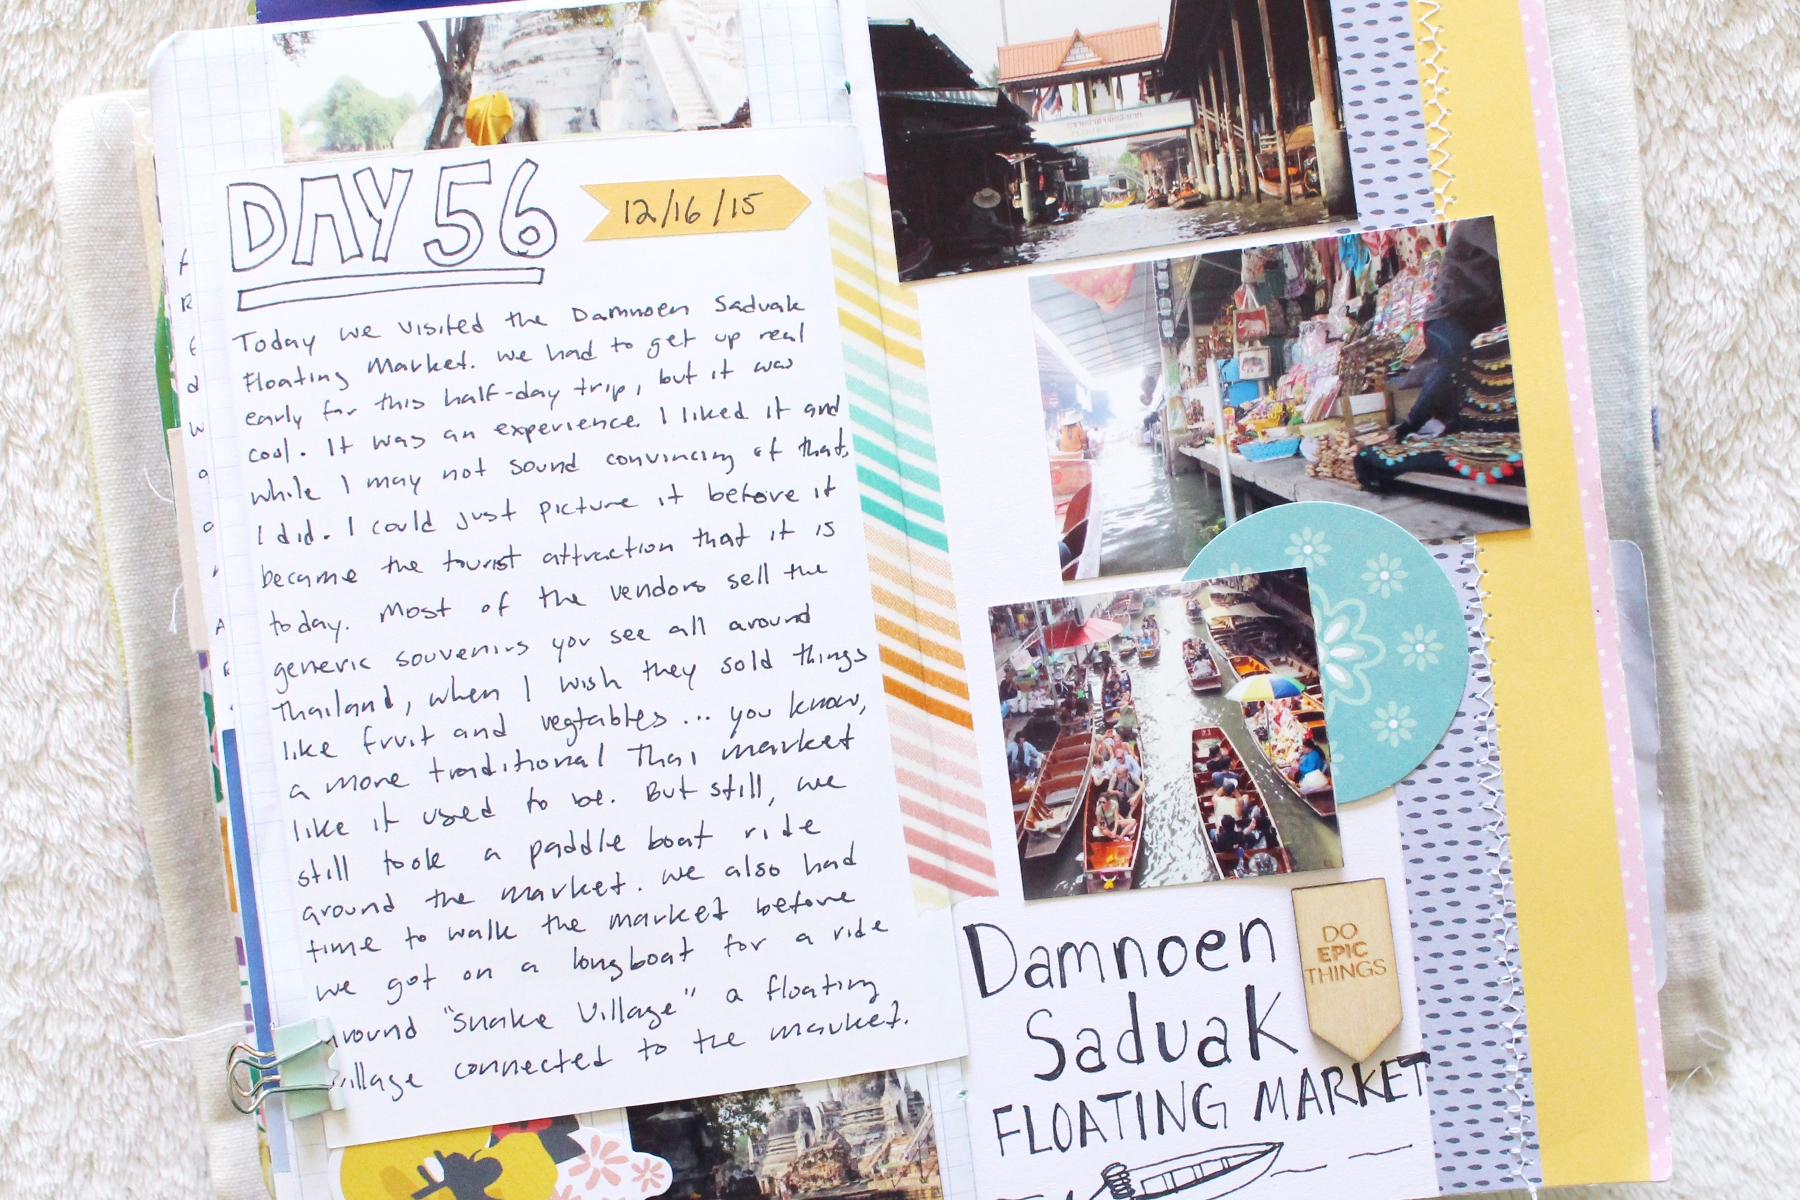 DAY 56
12/16/15
Today we visited the Damnoen Saduak
Floating Market. We had to get up real
early for this half-day trip, but it was
cool. It was an experience. I liked it and
while I may not sound convincing of that,
I did. I could just picture it before it
became the tourist attraction that it is
today. Most of the vendors sell the
generic souvenirs you see all around
Thailand, when I wish they sold things
like fruit and vegtables... you know,
a more traditional Thai market
like it used to be. But still, we
still took a paddle boat ride
around the market. We also had
time to walk the market before
we got on a longboat for a ride
around "Snake Village" a floating
village connected to the market.
DO
EPIC
THINGS
Damnoen
Saduak
FLOATING MARKET